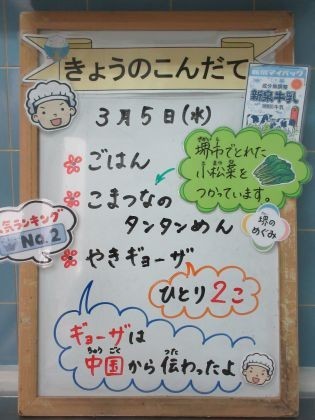 きょうのこんだて
3月5日(水)
ごはん
こまつなの
タンタンめん
やきギョーザ
ひとり2こ
堺市でとれた
小松菜を
つかっています。
堺の
めぐみ
気ランキング
No.2
ギョーザは
中国から伝わったよ
ちゅう ごく つた
牛乳